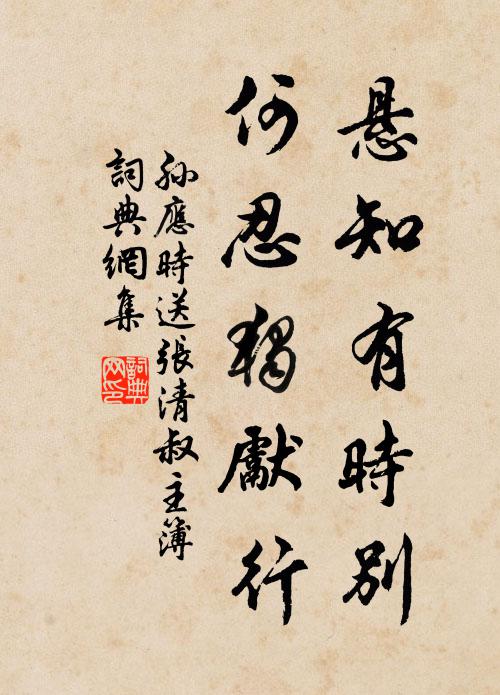 悬知有時别
何忍獨獻行
孫應時送張清叔主簿
詞典網集
詞典
网印